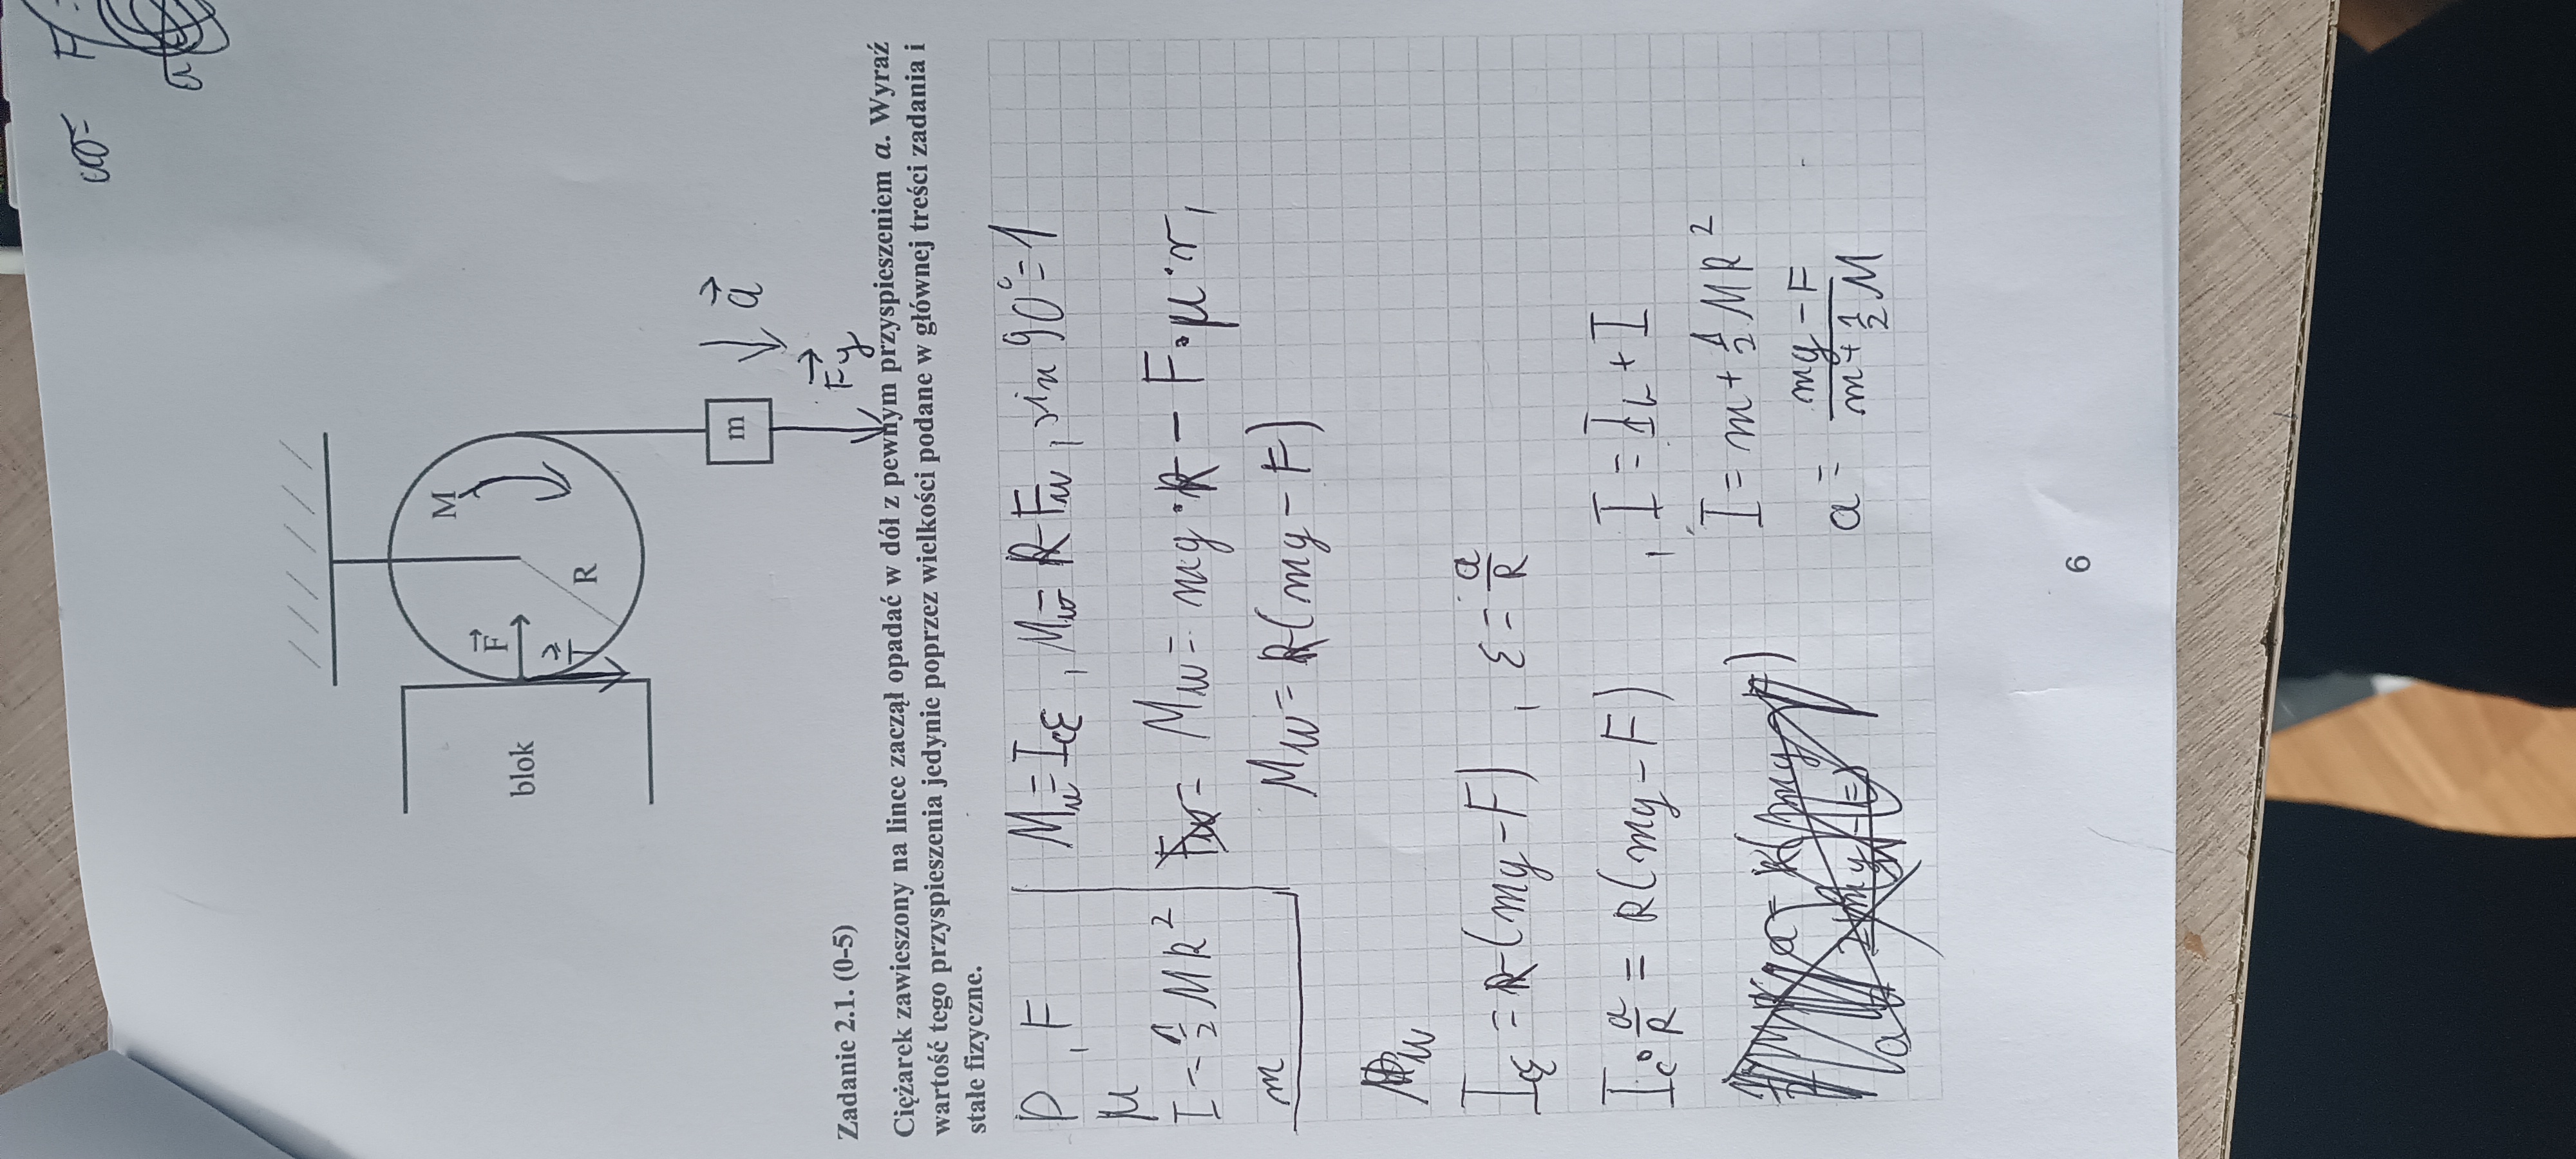 ω=
F
M
F⃗
T⃗
R
blok
m
a⃗
F⃗g
Zadanie 2.1. (0-5)
Ciężarek zawieszony na lince zaczął opadać w dół z pewnym przyspieszeniem a. Wyraź
wartość tego przyspieszenia jedynie poprzez wielkości podane w głównej treści zadania i
stałe fizyczne.
D, F
μ
I = 1/2 MR²
m
Mw = Icε, Mw = R Fw, sin 90° = 1
Mw = mg · R - F · μ · r,
Mw = R(mg - F)
Mw
Icε = R(mg - F), ε = a/R
Ic · a/R = R(mg - F), I = IL + I
I = m + 1/2 MR²
a = (mg - F)/(m + 1/2 M)
6